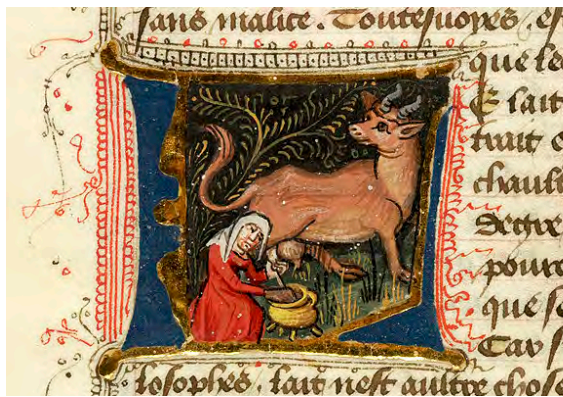 sans malice. Toutesuoyes. es
que le
lait
trait
chault
que se
Car s
losophes. lait nest aultre chose